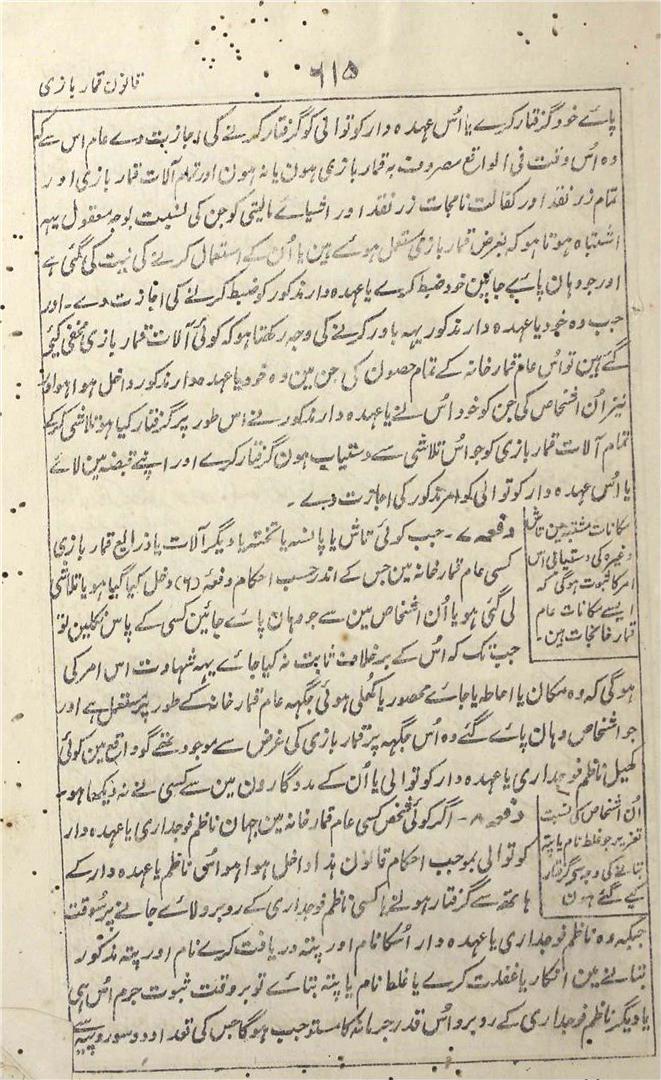 قانون قمار بازی
۶۱۵
پائے خود گرفتار کرے یا اُس عہدہ دار کوتوالی کو گرفتار کرنے کی اجازت دے عام اس سے کہ
وہ اُس وقت فی الواقع مصروف بہ قمار بازی ہون یا نہ ہون اور تمام آلات قمار بازی اور
تمام زر نقد اور کفالت نامجات زر نقد اور اشیاے مالیتی کو جن کی نسبت بوجہ معقول یہہ
اشتباہ ہوتا ہو کہ بغرض قمار بازی مستعمل ہوئے ہین یا اُن کے استعمال کرنے کی نیت کی گئی ہے
اور جو وہان پائے جائین خود ضبط کرے یا عہدہ دار مذکور کو ضبط کرنے کی اجازت دے۔ اور
جب وہ خود یا عہدہ دار مذکور یہہ باور کرنے کی وجہ رکھتا ہو کہ کوئی آلات قمار بازی مخفی کئے
گئے ہین تو اُس عام قمار خانہ کے تمام حصون کی جن مین وہ خود یا عہدہ دار مذکور داخل ہوا ہو اور
نیز اُن اشخاص کی جن کو خود اُس نے یا عہدہ دار مذکور نے اس طور پر گرفتار کیا ہو تلاشی کرکے
تمام آلات قمار بازی کو جو اُس تلاشی سے دستیاب ہون گرفتار کرے اور اپنے قبضہ مین لائے
یا اُس عہدہ دار کوتوالی کو امر مذکور کی اجازت دے۔
مکانات مشتبہ مین تاش
وغیرہ کی دستیابی اس
امر کا ثبوت ہوگی کہ
ایسے مکانات عام
قمار خانجات ہین۔
دفعہ ۷۔ جب کوئی تاش یا پانسہ یا تختہ یا دیگر آلات یا ذرایع قمار بازی
کسی عام قمار خانہ مین جس کے اندر حسب احکام دفعہ (۶) دخل کیا گیا ہو یا تلاشی
لی گئی ہو یا اُن اشخاص مین سے جو وہان پائے جائین کسی کے پاس نکلین تو
جب تک کہ اُس کے برخلاف ثابت نہ کیا جائے یہہ شہادت اس امر کی
ہوگی کہ وہ مکان یا احاطہ یا جائے محصور یا کھلی ہوئی جگہہ عام قمار خانہ کے طور پر مستعمل ہے اور
جو اشخاص وہان پائے گئے وہ اُس جگہہ پر قمار بازی کی غرض سے موجود تھے گو واقع مین کوئی
کھیل ناظم فوجداری یا عہدہ دار کوتوالی یا اُن کے مددگارون مین سے کسی نے نہ دیکھا ہو۔
اُن اشخاص کی نسبت
تعزیر جو غلط نام یا پتہ
بتانے کی وجہ گرفتار
کیے گئے ہون
دفعہ ۸۔ اگر کوئی شخص کسی عام قمار خانہ مین جہان ناظم فوجداری یا عہدہ دار
کوتوالی بموجب احکام قانون ہذا داخل ہوا ہو اسی ناظم یا عہدہ دار کے
ہاتھ سے گرفتار ہونے یا کسی ناظم فوجداری کے روبرو لائے جانے پر سُوقت
جبکہ وہ ناظم فوجداری یا عہدہ دار اُسکا نام اور پتہ دریافت کرے نام اور پتہ مذکور
بتانے مین انکار یا غفلت کرے یا غلط نام یا پتہ بتائے تو بر وقت ثبوت جرم اُس ہی
یا دیگر ناظم فوجداری کے روبرو اُس قدر جرمانہ کا مستوجب ہوگا جس کی تعداد دو سو روپیہ سے